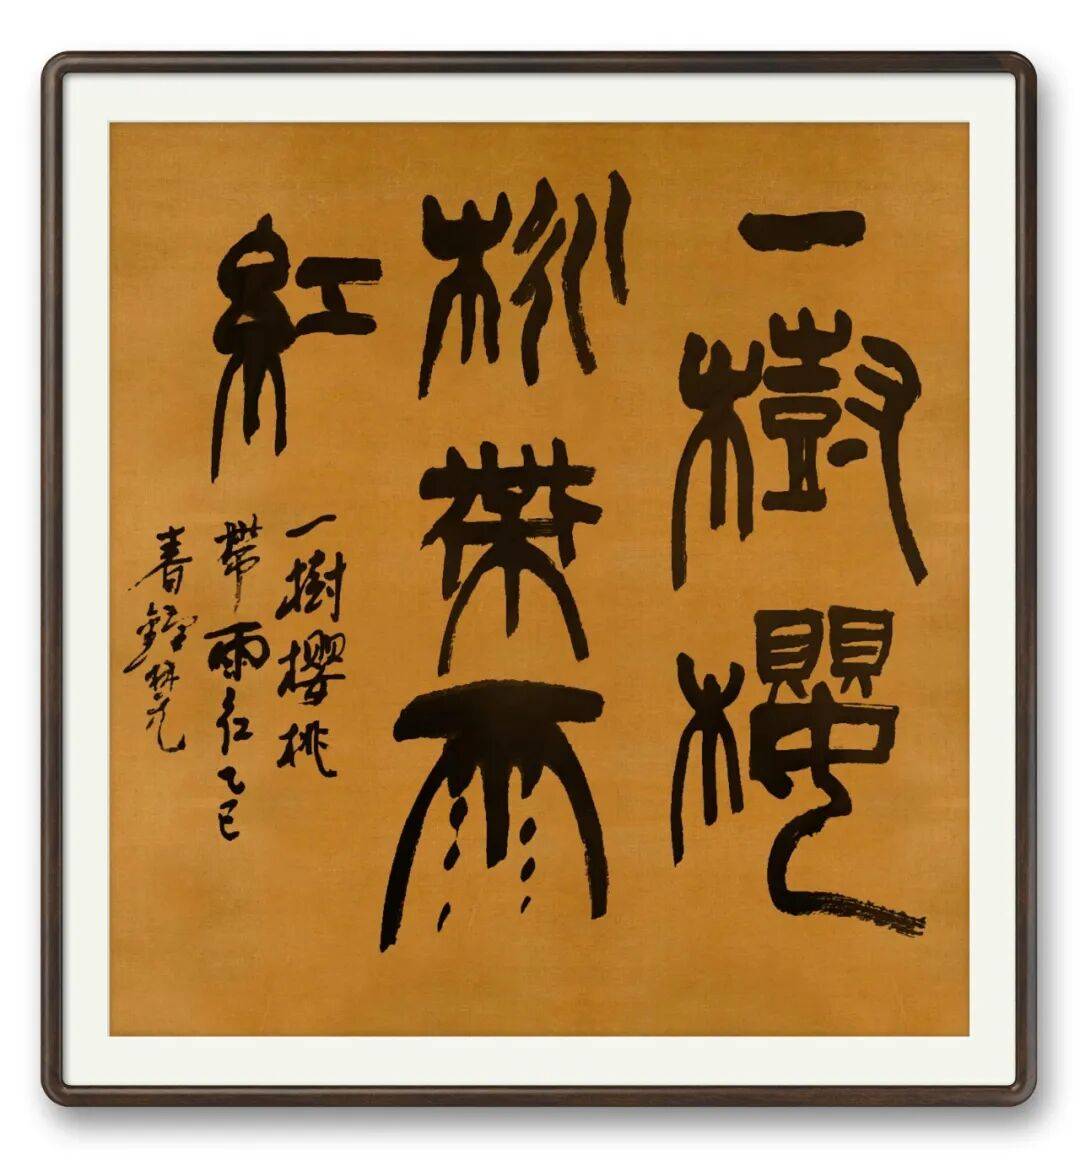 一樹櫻
桃帶雨
紅
一樹櫻桃
帶雨紅乙巳
春